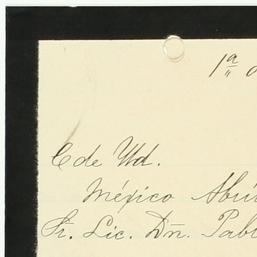 1ª
C de Ud.
México Abri
Sr. Lic. Dn. Pabl